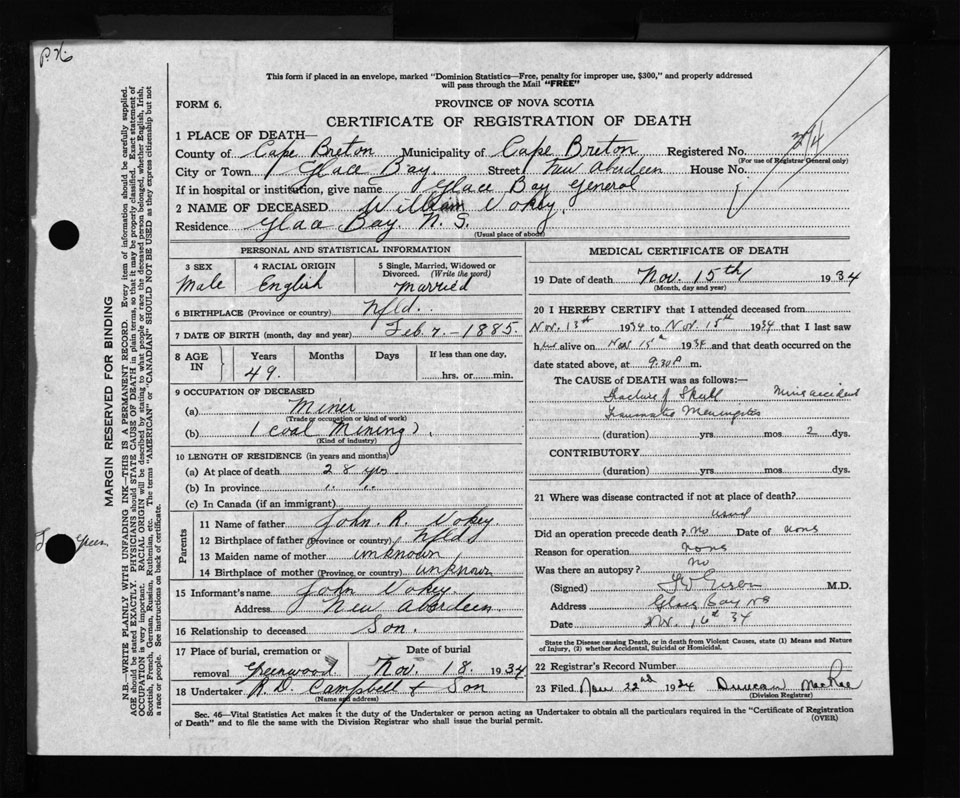 P.X.
This form if placed in an envelope, marked "Dominion Statistics—Free, penalty for improper use, $300," and properly addressed
will pass through the Mail "FREE"
FORM 6.
PROVINCE OF NOVA SCOTIA
CERTIFICATE OF REGISTRATION OF DEATH
1 PLACE OF DEATH—
County of Cape Breton Municipality of Cape Breton Registered No. 274
(For use of Registrar General only)
City or Town Glace Bay. Street New Aberdeen House No.
If in hospital or institution, give name Glace Bay General
2 NAME OF DECEASED William Vokey.
Residence Glace Bay. N. S.
(Usual place of abode)
PERSONAL AND STATISTICAL INFORMATION
3 SEX Male
4 RACIAL ORIGIN English
5 Single, Married, Widowed or Divorced. (Write the word) Married
6 BIRTHPLACE (Province or country) Nfld.
7 DATE OF BIRTH (month, day and year) Feb. 7. - 1885.
8 AGE IN Years Months Days If less than one day,
49. hrs. or min.
9 OCCUPATION OF DECEASED
(a) Miner
(Trade or occupation or kind of work)
(b) (Coal Mining).
(Kind of industry)
10 LENGTH OF RESIDENCE (in years and months)
(a) At place of death 28 yrs
(b) In province " "
(c) In Canada (if an immigrant)
Parents
11 Name of father John R. Vokey
12 Birthplace of father (Province or country) Nfld
13 Maiden name of mother unknown
14 Birthplace of mother (Province or country) unknown
15 Informant's name John Vokey.
Address New Aberdeen
16 Relationship to deceased Son.
17 Place of burial, cremation or removal Greenwood
Date of burial Nov. 18. 1934
18 Undertaker R. D. Campbell & Son
(Name and address)
MEDICAL CERTIFICATE OF DEATH
19 Date of death Nov. 15th 1934
(Month, day and year)
20 I HEREBY CERTIFY that I attended deceased from
Nov. 13th 1934 to Nov. 15th 1934 that I last saw
him alive on Nov 15th 1934 and that death occurred on the
date stated above, at 9.30 P m.
The CAUSE OF DEATH was as follows:—
Fracture of Skull Mine accident
Traumatic Meningitis
(duration) yrs mos 2 dys.
CONTRIBUTORY
(duration) yrs mos dys.
21 Where was disease contracted if not at place of death?
Did an operation precede death? no Date of none
Reason for operation none
Was there an autopsy? no
(Signed) M.D.
Address Glace Bay NS
Date Nov. 16th 34
State the Disease causing Death, or in death from Violent Causes, state (1) Means and Nature
of Injury, (2) whether Accidental, Suicidal or Homicidal.
22 Registrar's Record Number
23 Filed Nov 22nd 1934 Duncan MacRae
(Division Registrar)
Sec. 46—Vital Statistics Act makes it the duty of the Undertaker or person acting as Undertaker to obtain all the particulars required in the "Certificate of Registration
of Death" and to file the same with the Division Registrar who shall issue the burial permit.
(OVER)
MARGIN RESERVED FOR BINDING
N.B.—WRITE PLAINLY WITH UNFADING INK—THIS IS A PERMANENT RECORD. Every item of information should be carefully supplied.
AGE should be stated EXACTLY. PHYSICIANS should STATE CAUSE OF DEATH in plain terms, so that it may be properly classified. Exact statement of
OCCUPATION is very important. RACIAL ORIGIN will be described by stating to what people or race the deceased person belonged, whether English, Irish,
Scottish, French, German, Russian, Ruthenian, etc. The terms "AMERICAN" or "CANADIAN" SHOULD NOT BE USED as they express citizenship but not
a race or people. See instructions on back of certificate.